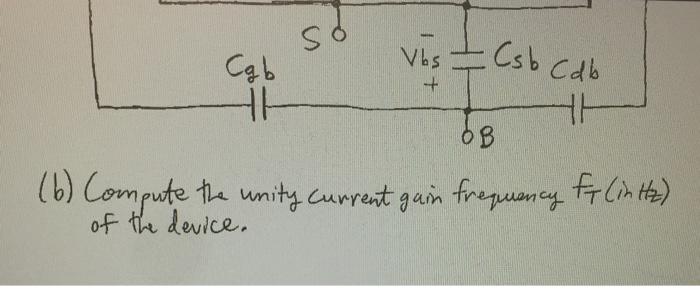 S
Cgb
Vbs
Csb
Cdb
-
+
B
(b) Compute the unity current gain frequency fT (in Hz)
of the device.